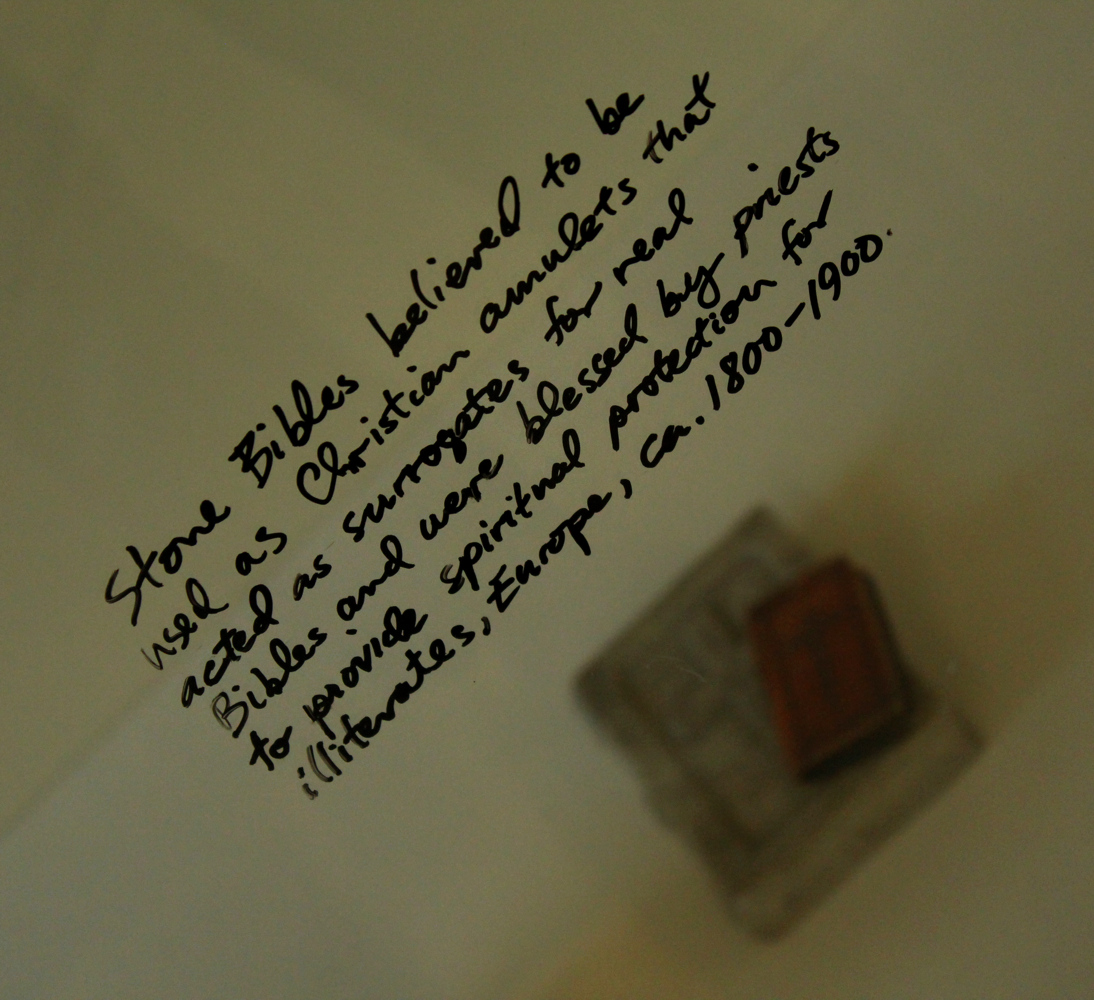 Stone Bibles believed to be
used as Christian amulets that
acted as surrogates for real
Bibles and were blessed by priests
to provide spiritual protection for
illiterates, Europe, ca. 1800-1900.